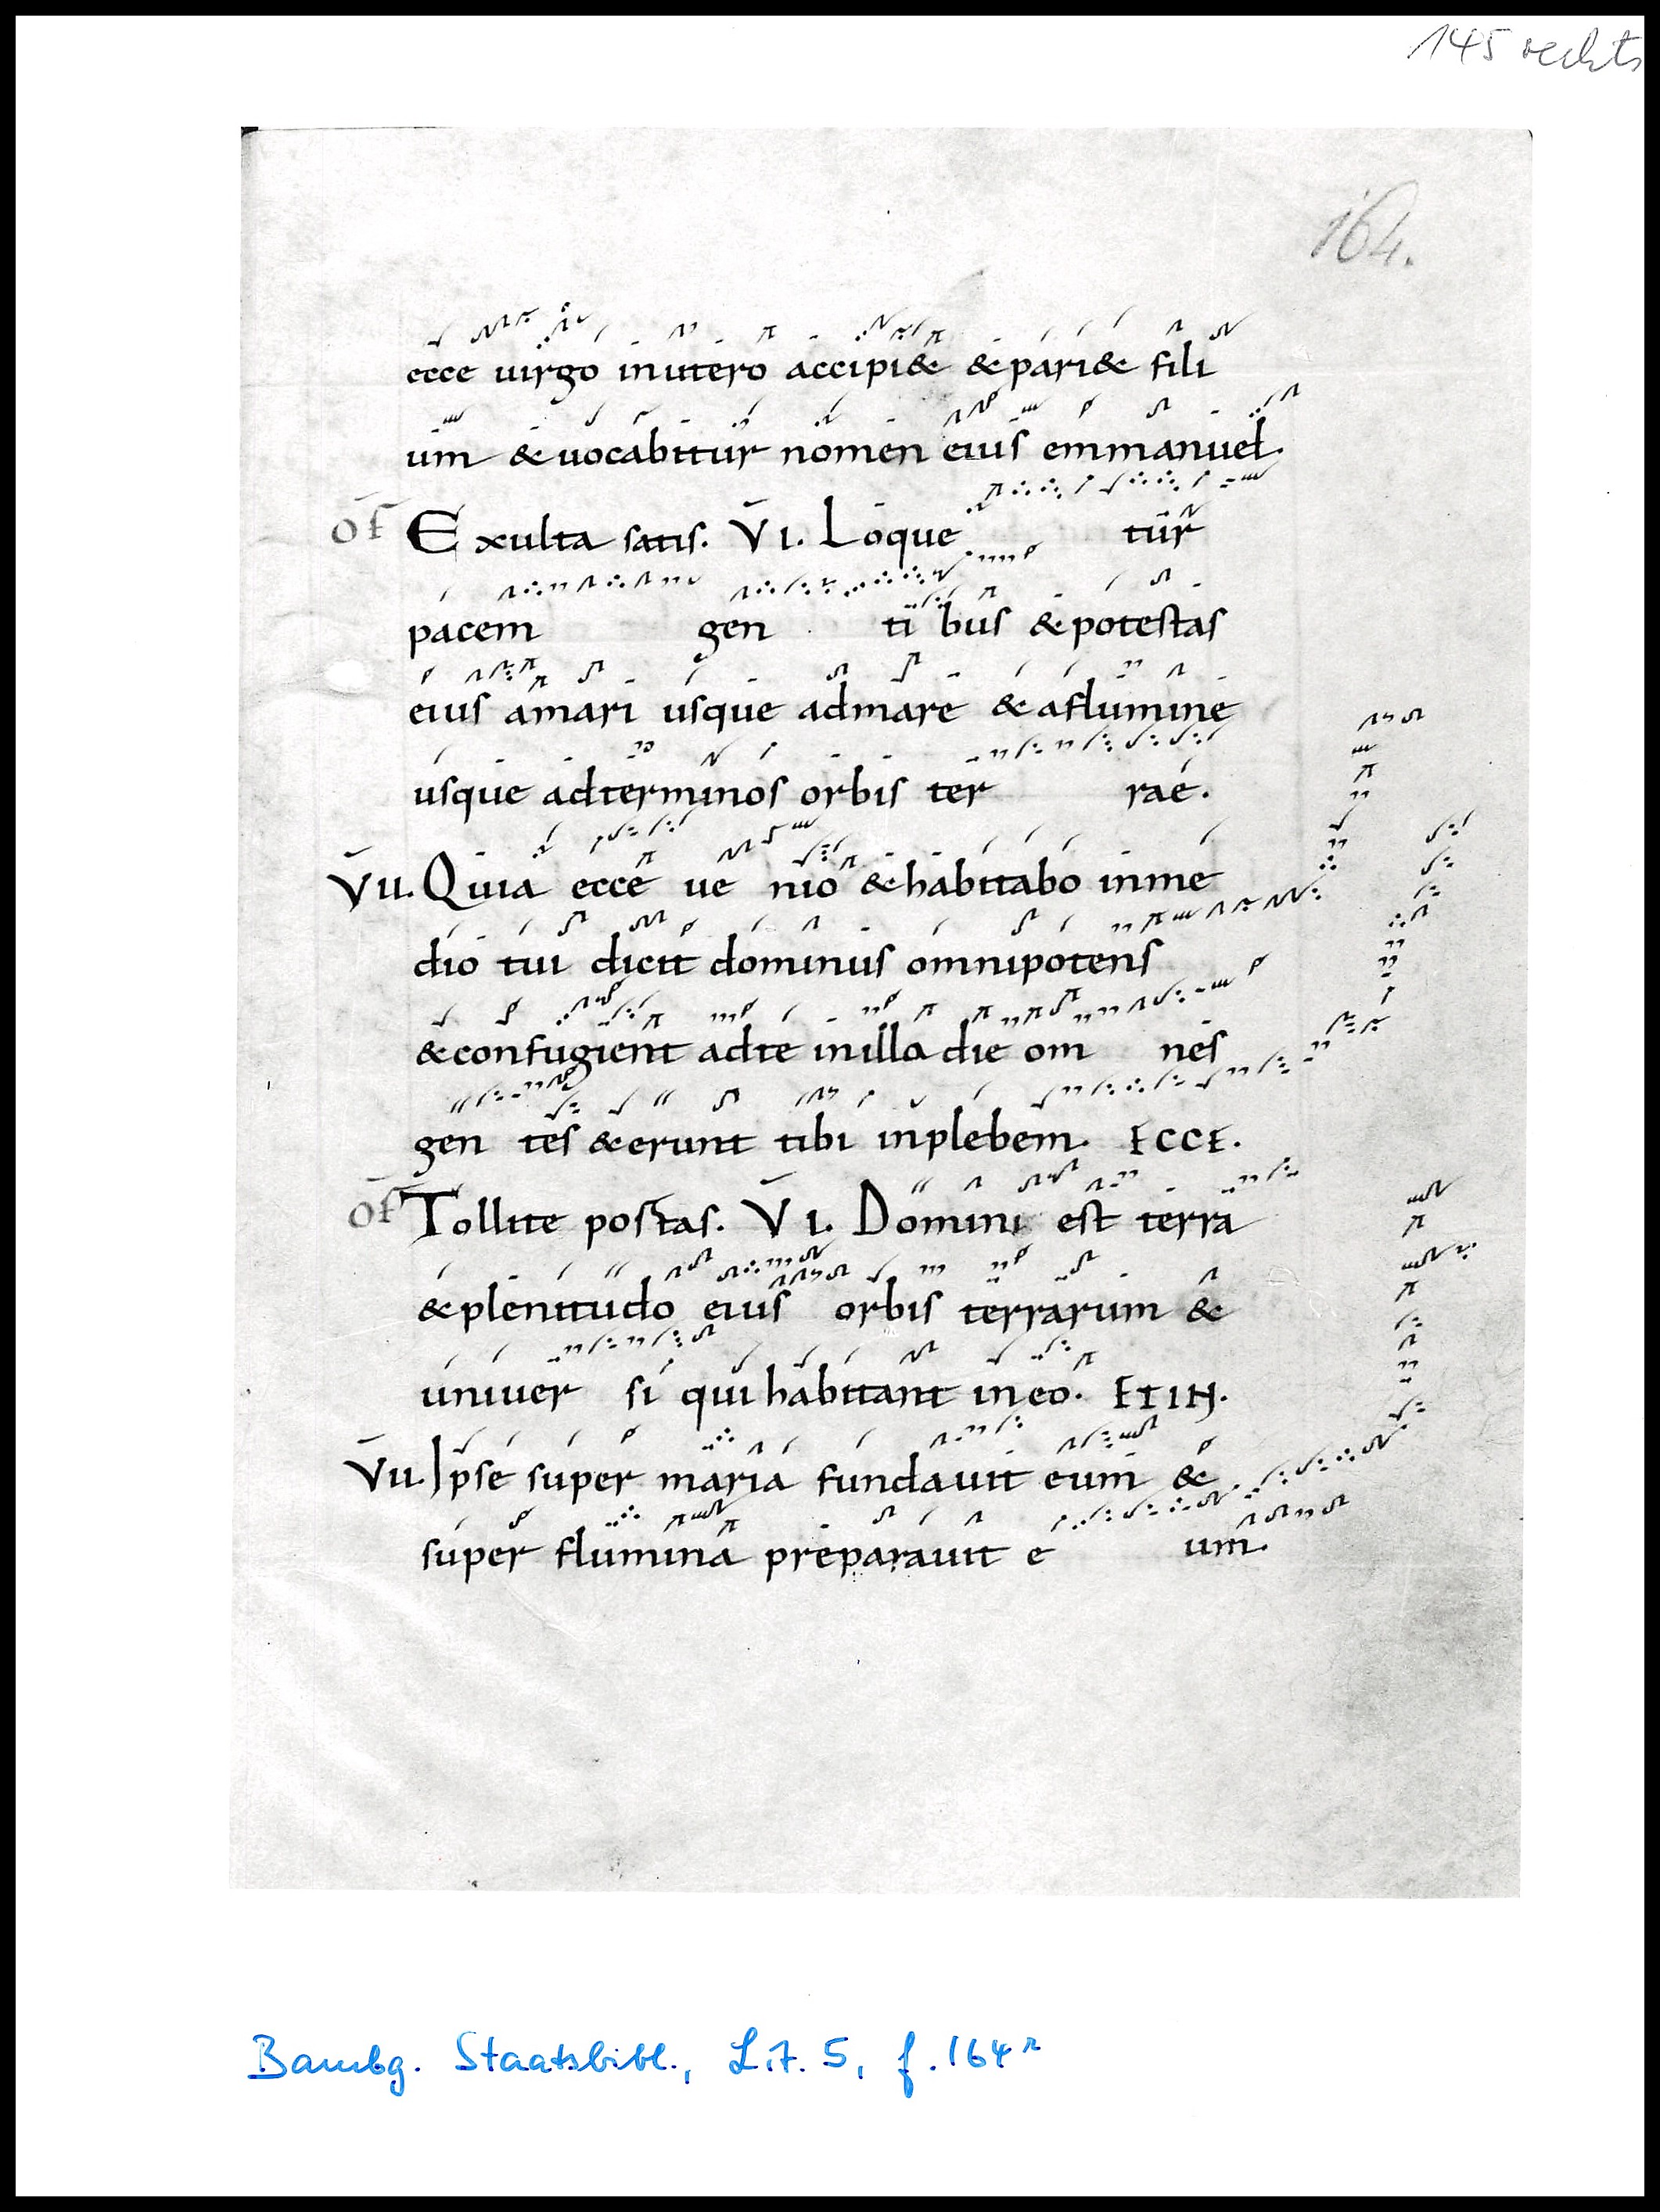 145 rechts
164.
ecce uirgo inutero accipi& & pari& fili
um & uocabitur nomen eius emmanuel.
of Exulta satis. VI. Loque tur
pacem gen ti bus & potestas
eius amari usque admare & aflumine
usque adterminos orbis ter rae.
VII. Quia ecce ue nio & habitabo inme
dio tui dicit dominus omnipotens
& confugient adte inilla die om nes
gen tes & erunt tibi inplebem. ECCE.
of Tollite postas. VI. Domini est terra
& plenitudo eius orbis terrarum &
uniuer si qui habitant ineo. ETIN.
VII. Ipse super maria fundauit eum &
super flumina preparauit e um.
Bambg. Staatsbibl., Lit. 5, f. 164r